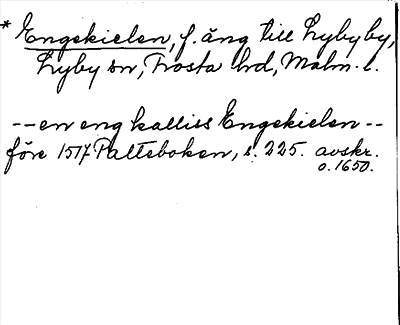 * Engekielen, f. äng till Lyby by,
Lyby sn, Frosta hd, Malm. l.
-- en eng kalliss Engekielen --
före 1517 Palteboken, s. 225. avskr.
o. 1650.